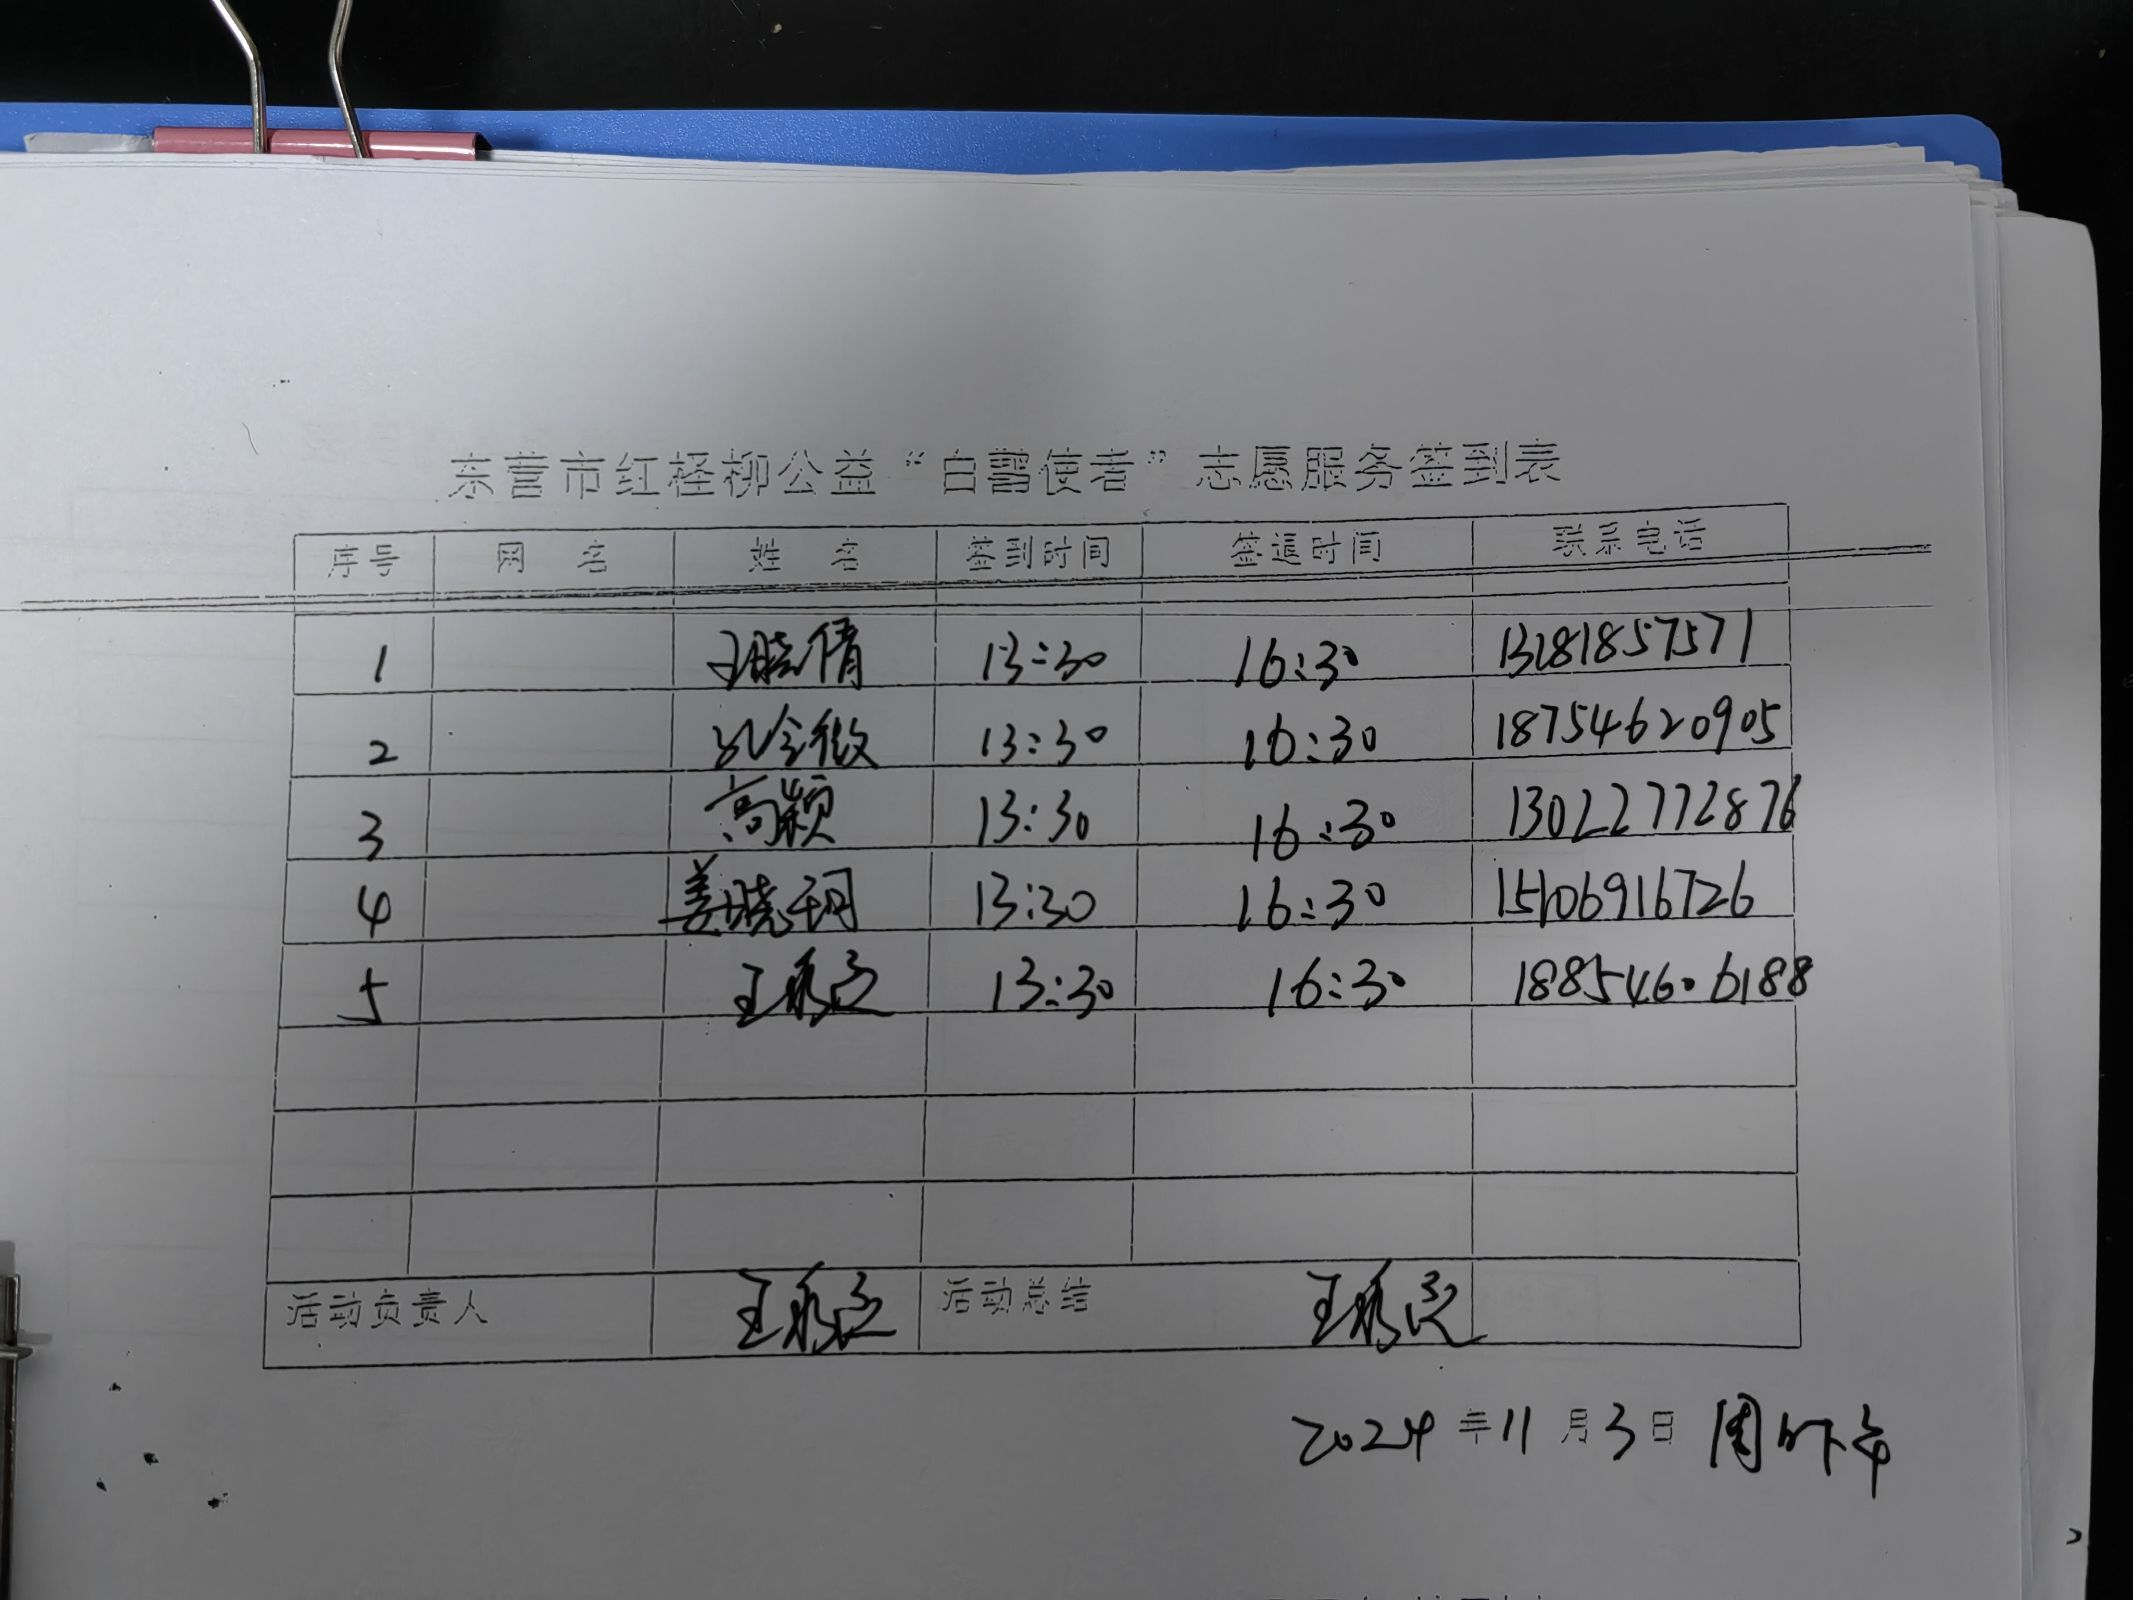 东营市红柽柳公益“白鹭使者”志愿服务签到表
序号 网 名 姓 名 签到时间 签退时间 联系电话
1 王晓倩 13:30 16:30 13181857571
2 孔令微 13:30 16:30 18754620905
3 高颖 13:30 16:30 13022772876
4 姜晓钥 13:30 16:30 15106916726
5 王 13:30 16:30 18854606188
活动负责人 王 活动总结 王
2024年11月3日 周日下午